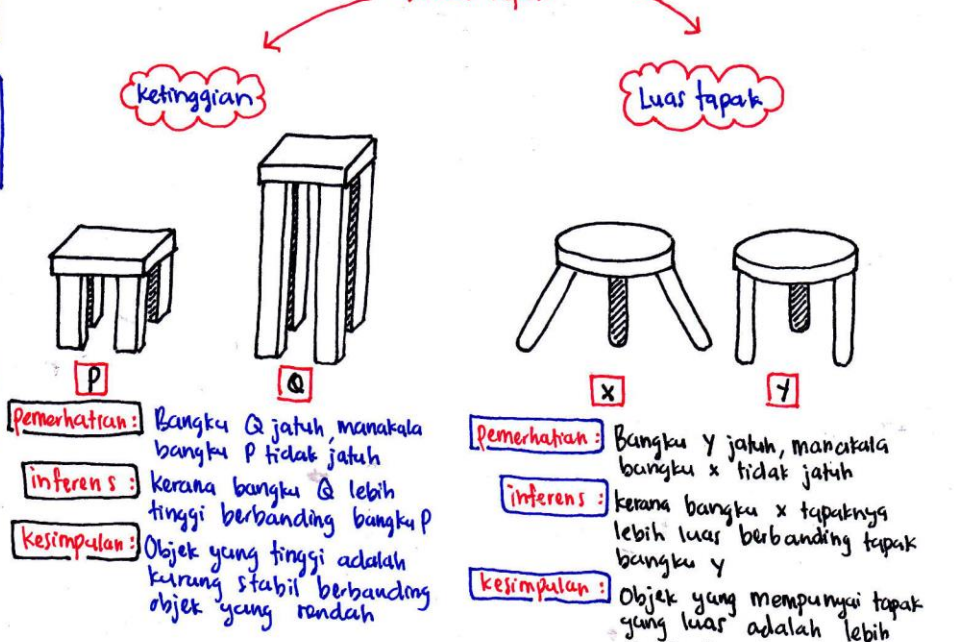 Ketinggian
Luas tapak
P
Q
X
Y
Pemerhatian: Bangku Q jatuh, manakala
bangku P tidak jatuh
inferens: Kerana bangku Q lebih
tinggi berbanding bangku P
Kesimpulan: Objek yang tinggi adalah
kurang stabil berbanding
objek yang rendah
Pemerhatian: Bangku Y jatuh, manakala
bangku x tidak jatuh
inferens: kerana bangku x tapaknya
lebih luas berbanding tapak
bangku Y
kesimpulan: Objek yang mempunyai tapak
yang luas adalah lebih